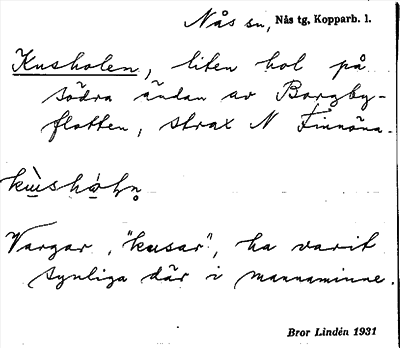 Nås sn, Nås tg, Kopparb. l.
Kusholen, liten hol på
södra ändan av Borgby-
flotten, strax N Finnöna.
kùshọ̀ln̥
Vargar, "kusar", ha varit
synliga där i mannaminne.
Bror Lindén 1931